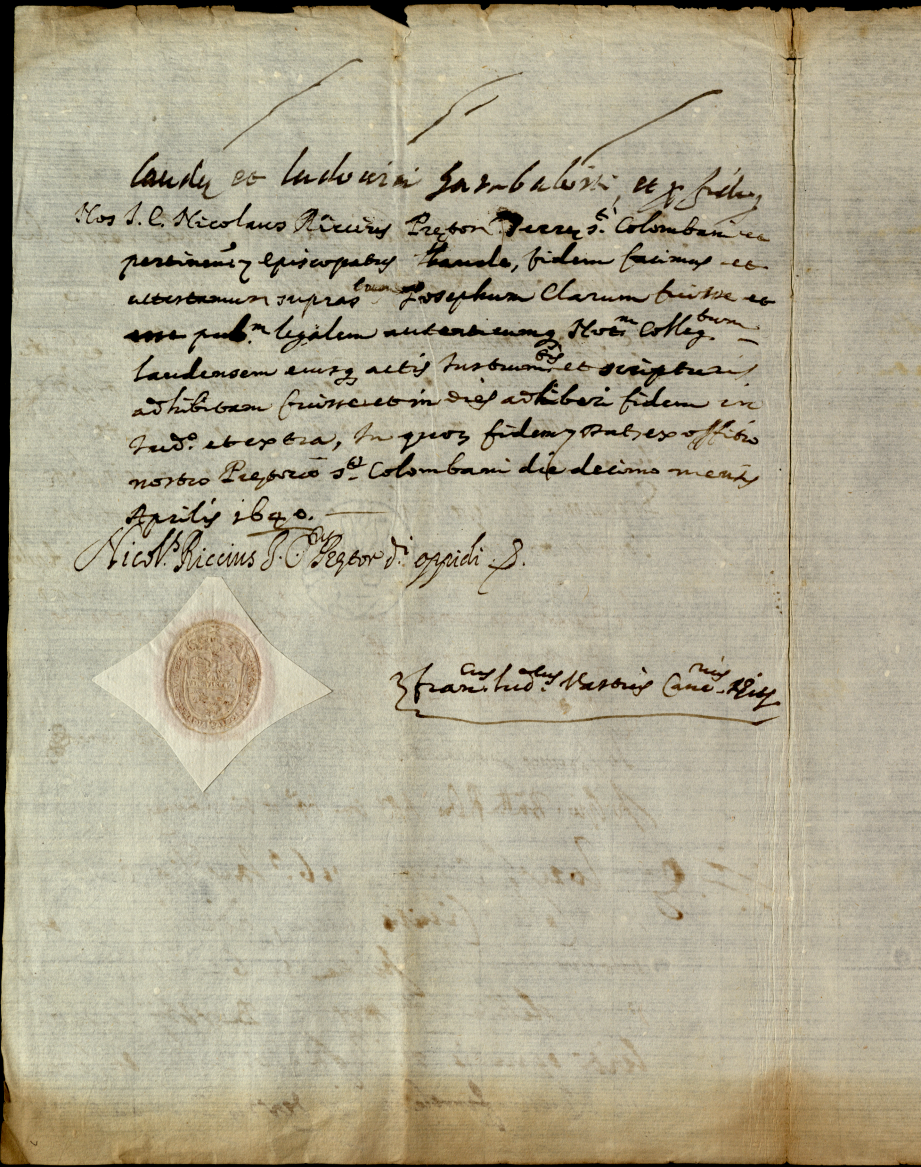 Laudę et Ludovici Garabaloti, et p fide
Nos J. C. Nicolaus Riccius Pręton Terrę s.ti Colombani et
pertinent episcopatus Laudę, fidem facimus et
attestamur supras.tum Josephum Clarum fuisse et
esse pub.m legalem autenticumq Not.m Colleg.tum
laudensem eiusq actis Instrum.tis et scripturis
adhibitam fuisse et in dies adhiberi fidem in
Iud.o et extra, In quor fidem Dat. ex offitio
nostro Pretorio s.ti Colombani die decimo mensis
Aprilis 1640.
Nicol.s Riccius J. C. Prętor d.i oppidi
Fran.cus Lud.cus Canc.rius